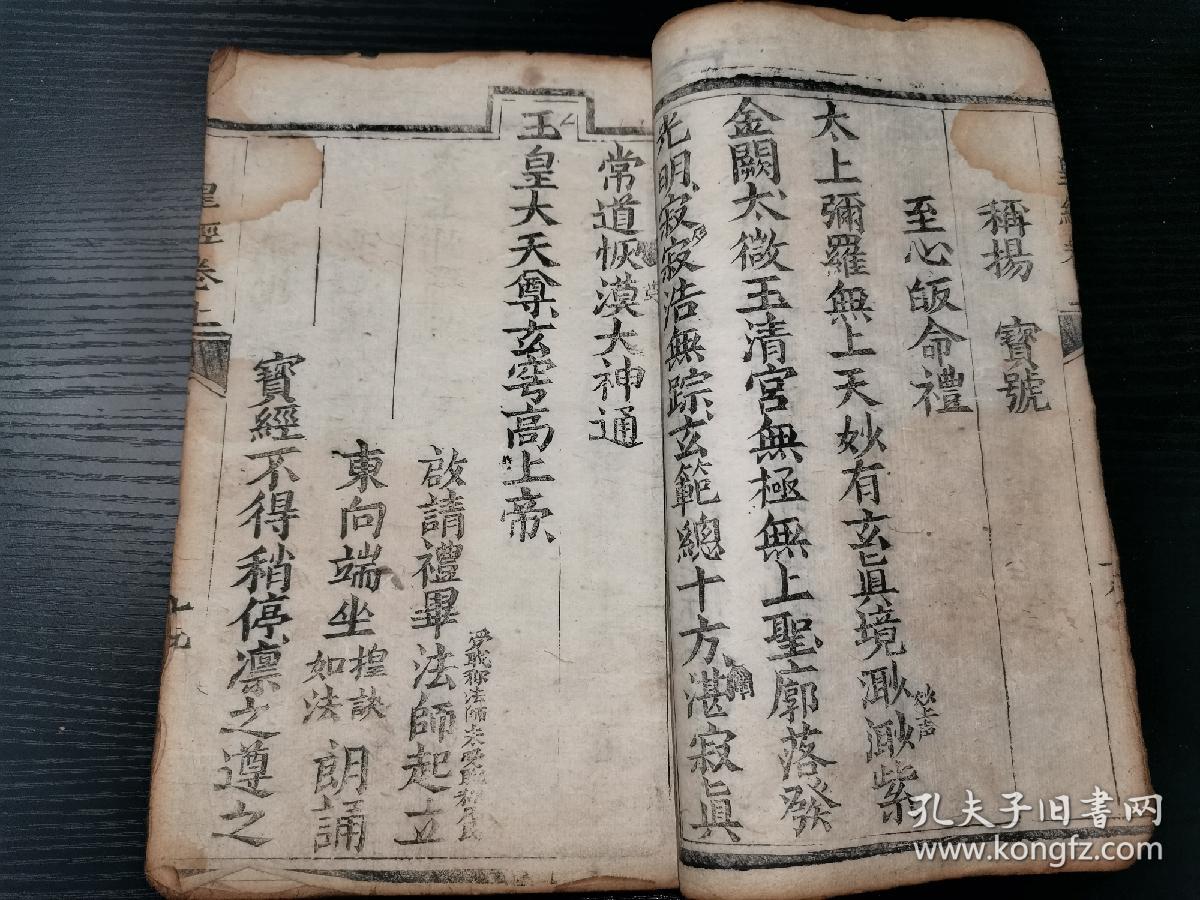 稱揚 寶號
至心皈命禮
太上彌羅無上天妙有玄眞境渺渺紫
金闕太微玉清宮無極無上聖廓落發
光明寂寂浩無踪玄範總十方湛寂眞
常道恢漠大神通
玉皇大天尊玄穹高上帝
啟請禮畢法師起立
東向端坐掐訣如法朗誦
寶經不得稍停凛之遵之
皇經卷上
孔夫子旧书网
www.kongfz.com